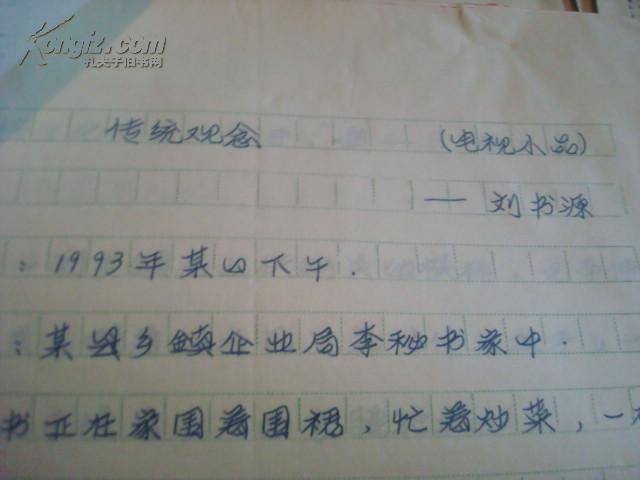 Kongfz.com
孔夫子旧书网
传统观念 (电视小品)
— 刘书源
：1993年某日下午.
：某县乡镇企业局李秘书家中.
书正在家围着围裙，忙着炒菜，一